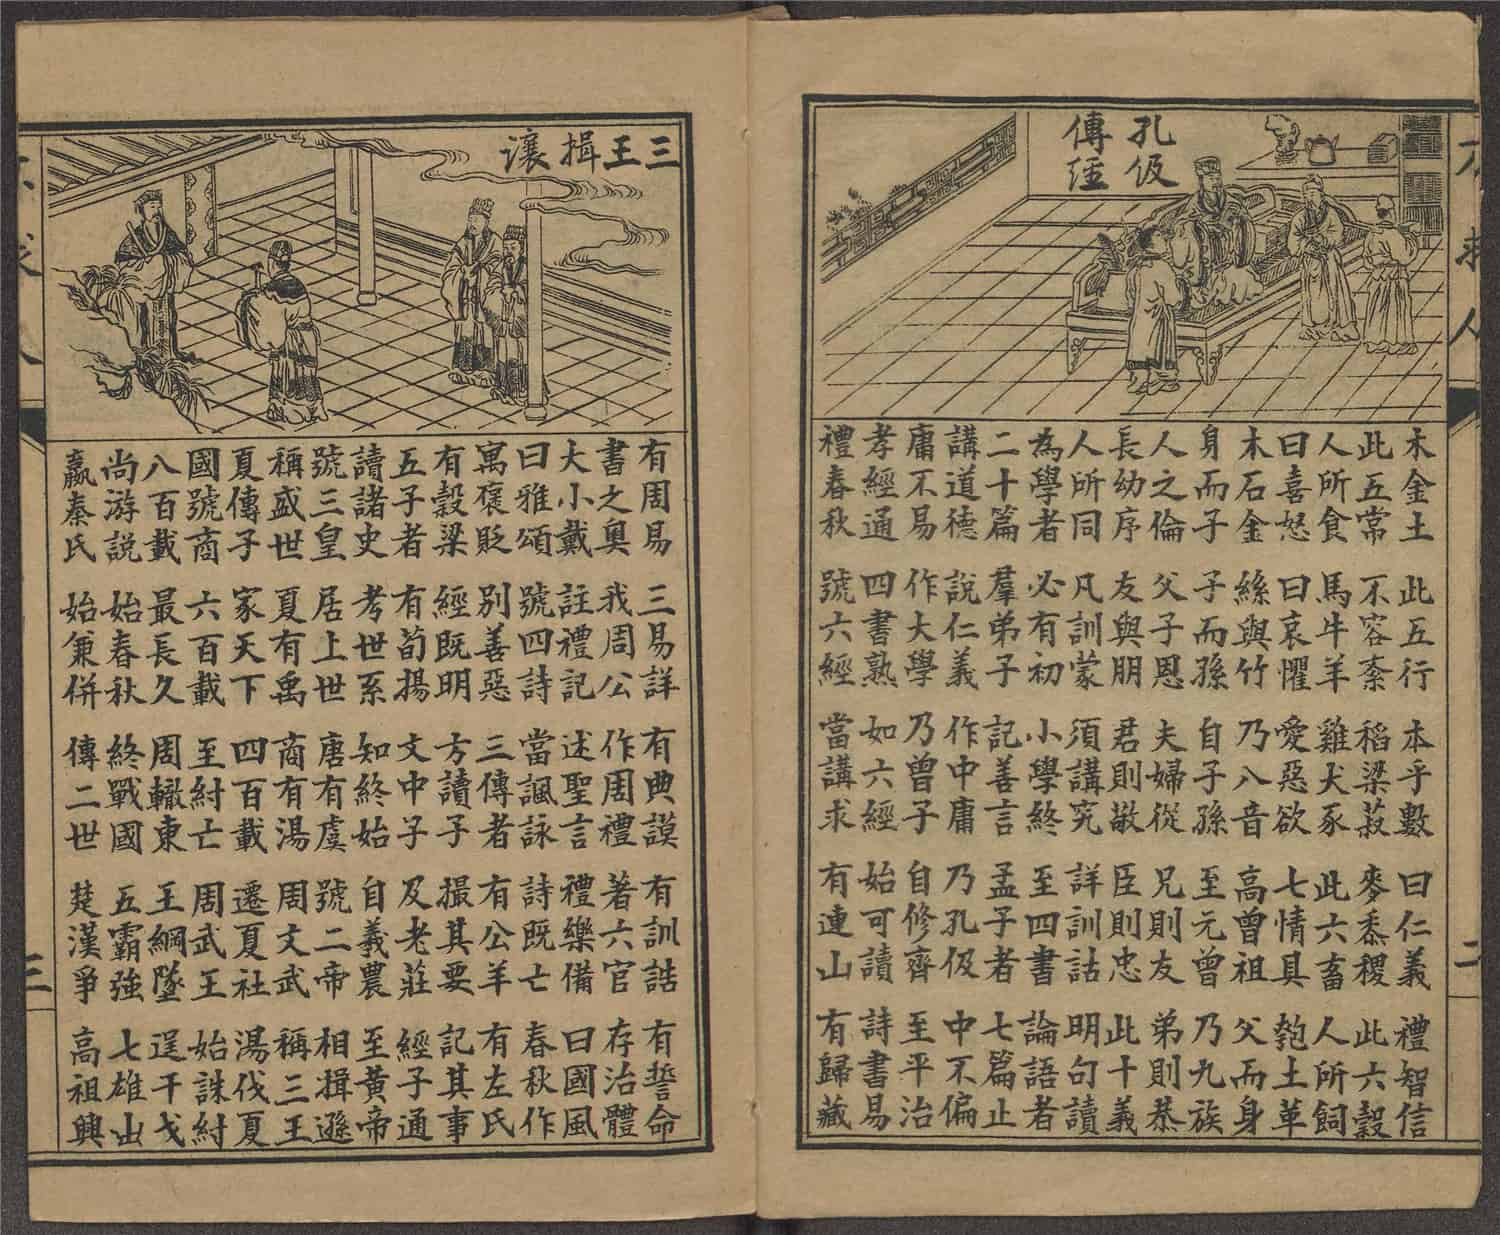 不求人
二
孔伋
傳經
木金土 此五行 本乎數 曰仁義 禮智信
此五常 不容紊 稻梁菽 麥黍稷 此六穀
人所食 馬牛羊 雞犬豕 此六畜 人所飼
曰喜怒 曰哀懼 愛惡欲 七情具 匏土革
木石金 絲與竹 乃八音 高曾祖 父而身
身而子 子而孫 自子孫 至元曾 乃九族
人之倫 父子恩 夫婦從 兄則友 弟則恭
長幼序 友與朋 君則敬 臣則忠 此十義
人所同 凡訓蒙 須講究 詳訓詁 明句讀
為學者 必有初 小學終 至四書 論語者
二十篇 羣弟子 記善言 孟子者 七篇止
講道德 說仁義 作中庸 乃孔伋 中不偏
庸不易 作大學 乃曾子 自修齊 至平治
孝經通 四書熟 如六經 始可讀 詩書易
禮春秋 號六經 當講求 有連山 有歸藏
三王揖讓
有周易 三易詳 有典謨 有訓誥 有誓命
書之奧 我周公 作周禮 著六官 存治體
大小戴 註禮記 述聖言 禮樂備 曰國風
曰雅頌 號四詩 當諷詠 詩既亡 春秋作
寓褒貶 別善惡 三傳者 有公羊 有左氏
有穀梁 經既明 方讀子 撮其要 記其事
五子者 有荀揚 文中子 及老莊 經子通
讀諸史 考世系 知終始 自羲農 至黃帝
號三皇 居上世 唐有虞 號二帝 相揖遜
稱盛世 夏有禹 商有湯 周文武 稱三王
夏傳子 家天下 四百載 遷夏社 湯伐夏
國號商 六百載 至紂亡 周武王 始誅紂
八百載 最長久 周轍東 王綱墜 逞干戈
尚游說 始春秋 終戰國 五霸強 七雄出
嬴秦氏 始兼併 傳二世 楚漢爭 高祖興
三